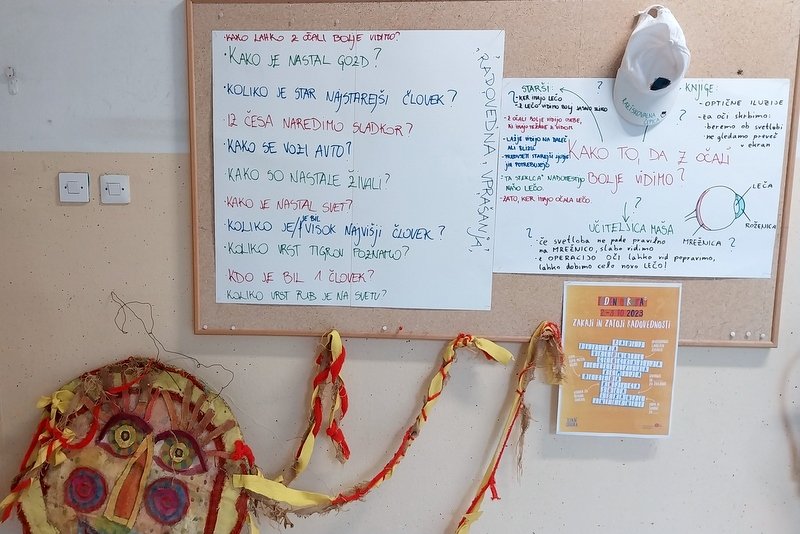 KAKO LAHKO Z OČALI BOLJE VIDIMO?
KAKO JE NASTAL GOZD?
KOLIKO JE STAR NAJSTAREJŠI ČLOVEK?
IZ ČESA NAREDIMO SLADKOR?
KAKO SE VOZI AVTO?
KAKO SO NASTALE ŽIVALI?
KAKO JE NASTAL SVET?
KOLIKO JE/JE BIL VISOK NAJVIŠJI ČLOVEK?
KOLIKO VRST TIGROV POZNAMO?
KDO JE BIL 1 ČLOVEK?
KOLIKO VRST RIB JE NA SVETU?
"RADOVEDNA VPRAŠANJA"
STARŠI:
- KER IMAJO LEČO
- Z LEČO VIDIMO BOLJ
- Z OČALI BOLJE VIDIJO OSEBE,
KI IMAJO TEŽAVE Z VIDOM.
- LAŽJE VIDIJO NA DALEČ
ALI BLIZU.
JIH POTREBUJEJO
- "TA STEKLCA" NADOMESTIJO
NAŠO LEČO.
- ZATO, KER IMAJO OČALA LEČO.
KAKO TO, DA Z OČALI
BOLJE VIDIMO?
?
KNJIGE:
- OPTIČNE ILUZIJE
- za oči skrbimo:
beremo ob svetlobi
ne gledamo preveč
v ekran
LEČA
ROŽENICA
MREŽNICA
?
UČITELJICA MAŠA
- če svetloba ne pade pravilno
na MREŽNICO, slabo vidimo
- z OPERACIJO OČI lahko vid popravimo,
lahko dobimo celo novo LEČO!
2.-3.10.2023
ZAKAJI IN ZATOJI RADOVEDNOSTI